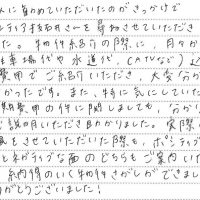 に勧めていただいたのがきっかけで
ティア 技研さんを尋ねさせていただき
た。物件紹介の際に、月々か
車場代や水道代、CATVなど込
費用でご紹介いただき、大変分か
かったです。また、特に気にしていた
期費用の件に関しましても、分かり
ご説明いただき助かりました。実際
覧をさせていただいた際も、ポジティブ
とネガティブな面のどちらもご案内いた
、納得のいく物件さがしができまし
がとうございました!